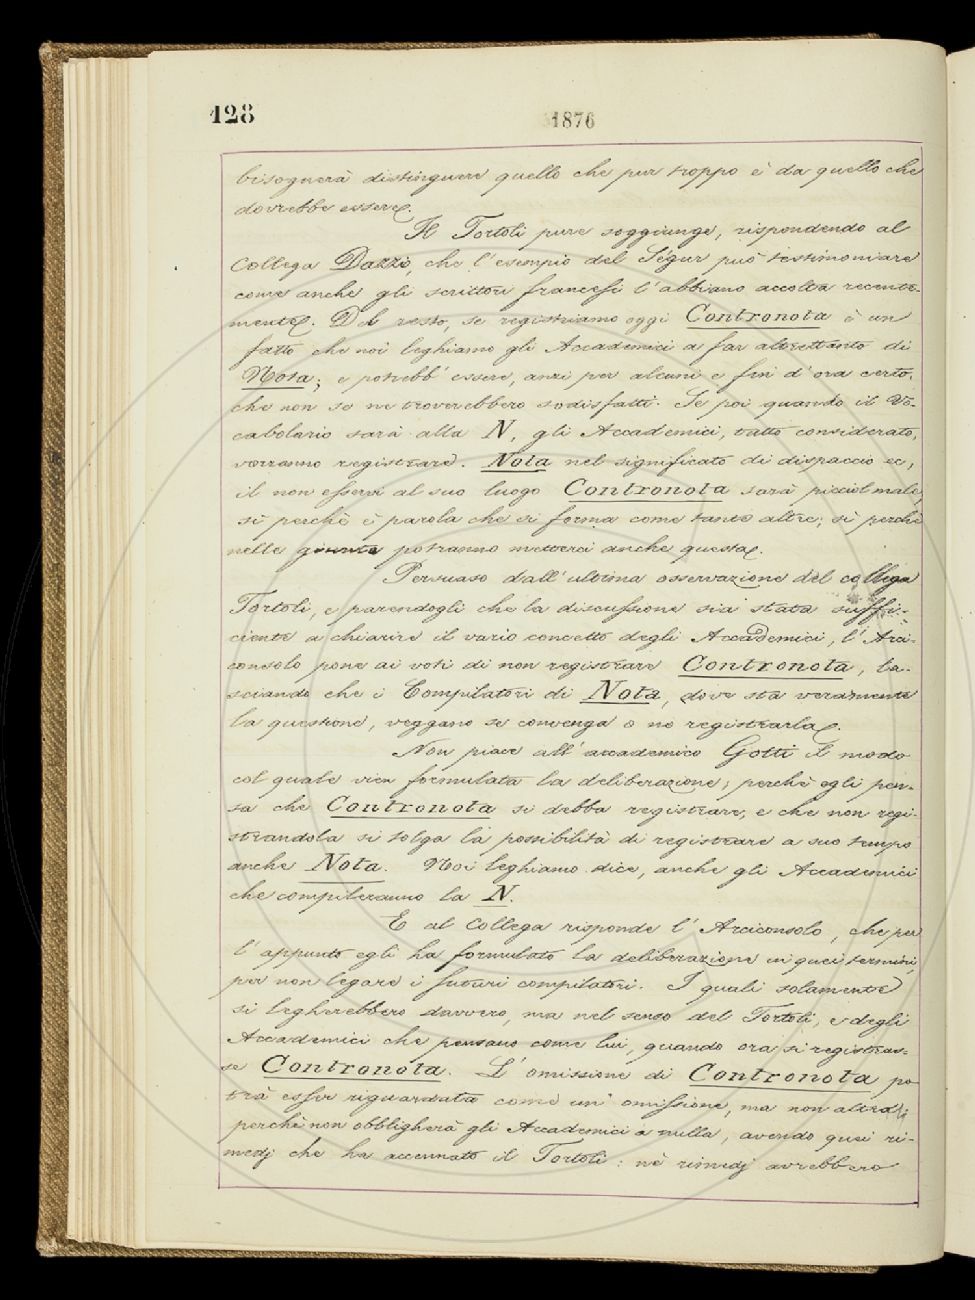 128
1876
bisognerà distinguere quello che pur troppo è da quello che
dovrebbe essere.
Il Tortoli pure soggiunge, rispondendo al
Collega Dazzi, che l'esempio del Ségur può testimoniare
come anche gli scrittori francesi l'abbiano accolta recente-
mente. Del resto, se registriamo oggi Contronota è un
fatto che noi leghiamo gli Accademici a far altrettanto di
Nota; e potrebb'essere, anzi per alcuni e fin d'ora certo,
che non se ne troverebbero sodisfatti. Se poi quando il Vo-
cabolario sarà alla N, gli Accademici, tutto considerato,
vorranno registrare. Nota nel significato di dispaccio ec,
il non esservi al suo luogo Contronota sarà picciol male,
sì perchè è parola che si forma come tante altre; sì perchè
nelle giunte potranno metterci anche questa.
Persuaso dall'ultima osservazione del collega
Tortoli, e parendogli che la discussione sia stata suffi-
ciente a chiarire il vario concetto degli Accademici, l'Arci-
consolo pone ai voti di non registrare Contronota, la-
sciando che i Compilatori di Nota, dove sta veramente
la questione, veggano se convenga o no registrarla.
Non piace all'accademico Gotti il modo
col quale vien formulata la deliberazione; perchè egli pen-
sa che Contronota si debba registrare, e che non regi-
strandola si tolga la possibilità di registrare a suo tempo
anche Nota. Noi leghiamo dice, anche gli Accademici
che compileranno la N.
E al Collega risponde l'Arciconsolo, che per
l'appunto egli ha formulato la deliberazione in quei termini,
per non legare i futuri compilatori. I quali solamente
si legherebbero davvero, ma nel senso del Tortoli, e degli
Accademici che pensano come lui, quando ora si registras-
se Contronota. L'omissione di Contronota po-
trà esser riguardata come un'omissione, ma non altro;
perchè non obbligherà gli Accademici a nulla, avendo quei ri-
medj che ha accennato il Tortoli: nè rimedj avrebbero